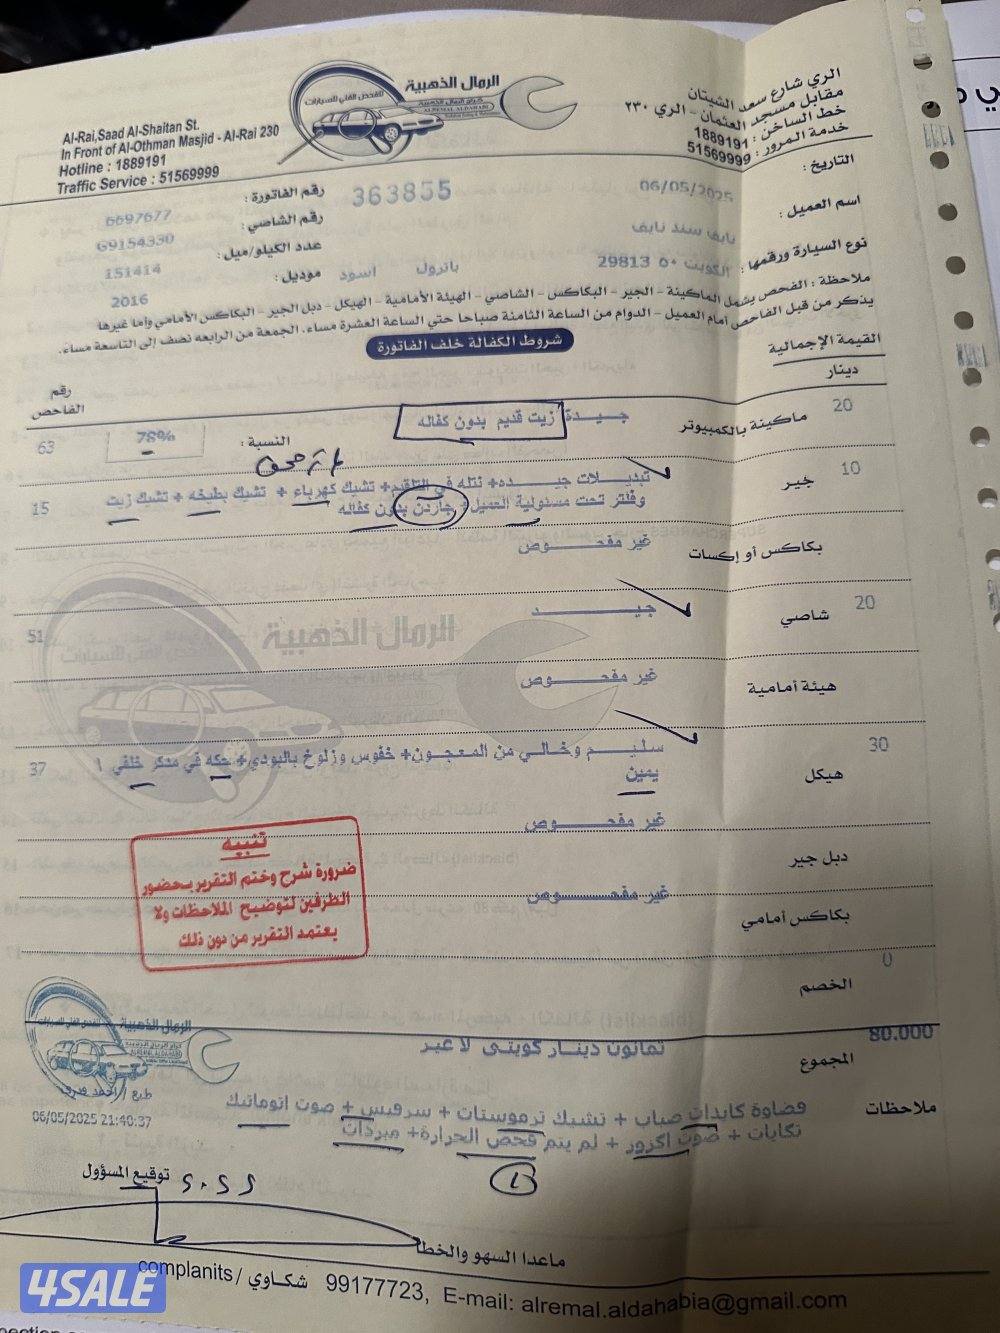 الرمال الذهبية
للفحص الفني للسيارات
كراج الرمال الذهبية
ALREMAL ALDAHABI
Al-Rai,Saad Al-Shaitan St.
In Front of Al-Othman Masjid - Al-Rai 230
Hotline : 1889191
Traffic Service : 51569999
الري شارع سعد الشيتان
مقابل مسجد العثمان - الري ٢٣٠
خط الساخن : 1889191
خدمة المرور : 51569999
التاريخ : 06/05/2025
رقم الفاتورة : 363855
اسم العميل : نايف سند نايف
رقم الشاصي : 6697677
G9154330
نوع السيارة ورقمها : الكويت ٥٠ 29813 باترول اسود
عدد الكيلو/ميل : 151414
موديل : 2016
ملاحظة : الفحص يشمل الماكينة - الجير - البكاكس - الشاصي - الهيئة الأمامية - الهيكل - دبل الجير - البكاكس الأمامي وإما غيرها
يذكر من قبل الفاحص أمام العميل - الدوام من الساعة الثامنة صباحا حتي الساعة العشرة مساء. الجمعة من الرابعه نصف إلى التاسعة مساء.
شروط الكفالة خلف الفاتورة
القيمة الإجمالية
دينار
رقم الفاحص
20 ماكينة بالكمبيوتر جيدة زيت قديم بدون كفاله
النسبة : 78% 63
10 جير تبديلات جيده+ نتله في التلقيم+ تشيك كهرباء + تشيك بطيخه + تشيك زيت
وفلتر تحت مسئولية العميل+ جاردن بدون كفاله 15
بكاكس أو إكسات غير مفحوص
20 شاصي جيد 51
هيئة أمامية غير مفحوص
30 هيكل سليم وخالي من المعجون+ خفوس وزلوخ بالبودي+ حكه في مدكر خلفي 37
يمين
دبل جير غير مفحوص
بكاكس أمامي غير مفحوص
تنبيه
ضرورة شرح وختم التقرير بحضور
الطرفين لتوضيح الملاحظات ولا
يعتمد التقرير من دون ذلك
الخصم 0
80.000 المجموع ثمانون دينار كويتي لا غير
ملاحظات فضاوة كابدات صباب + تشيك ترموستات + سرفيس + صوت اتوماتيك
تكايات + صوت اكزوز + لم يتم فحص الحرارة+ مبردات
الرمال الذهبية
ALREMAL ALDAHABI
06/05/2025 21:40:37
توقيع المسؤول
ماعدا السهو والخطأ
complanits / شكاوي 99177723, E-mail: alremal.aldahabia@gmail.com
4SALE